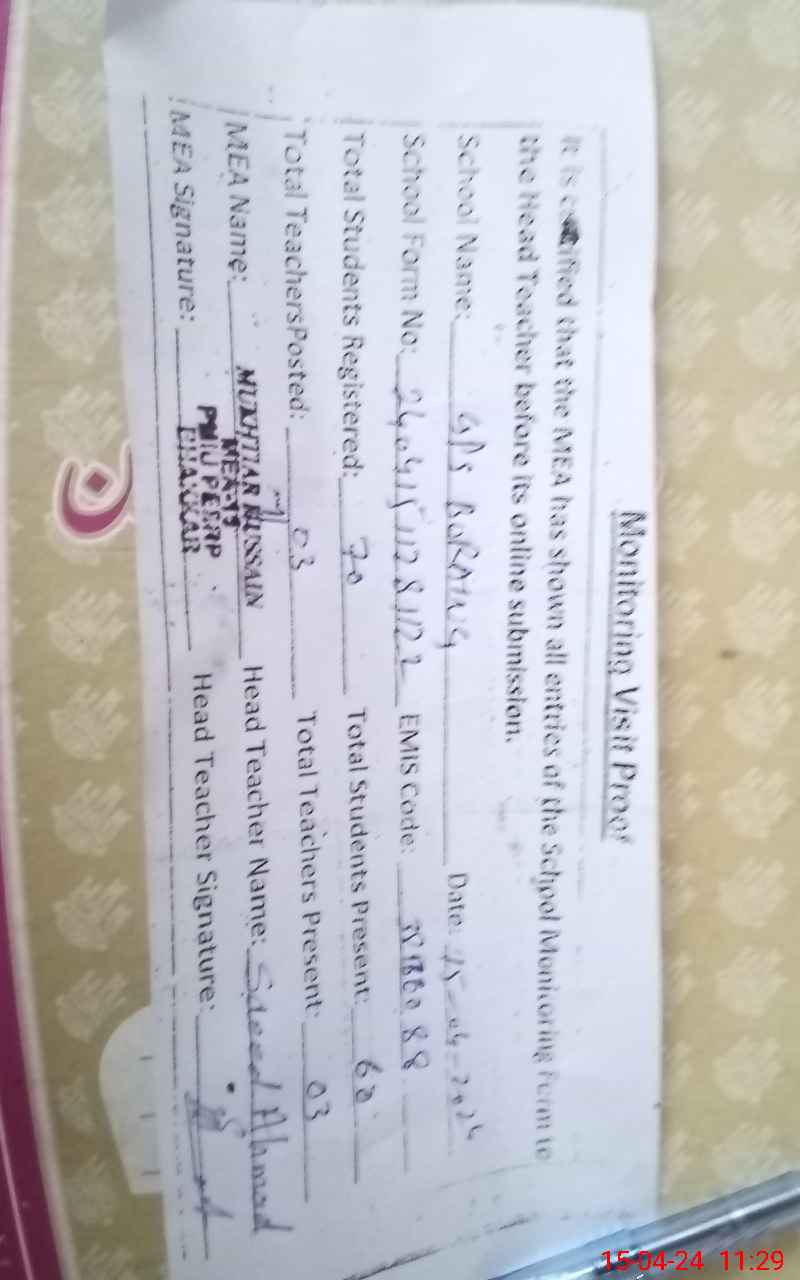 Monitoring Visit Proof
It is certified that the MEA has shown all entries of the School Monitoring Form to
the Head Teacher before its online submission.
School Name: GPS BORAING Date: 15-04-2024
School Form No: EMIS Code:
Total Students Registered: 70 Total Students Present: 60
Total TeachersPosted: 03 Total Teachers Present: 03
MEA Name: MUKHTIAR HUSSAIN Head Teacher Name: Saeed Ahmad
MEA-19
MEA Signature: Head Teacher Signature:
BHAKKAR
15-04-24 11:29